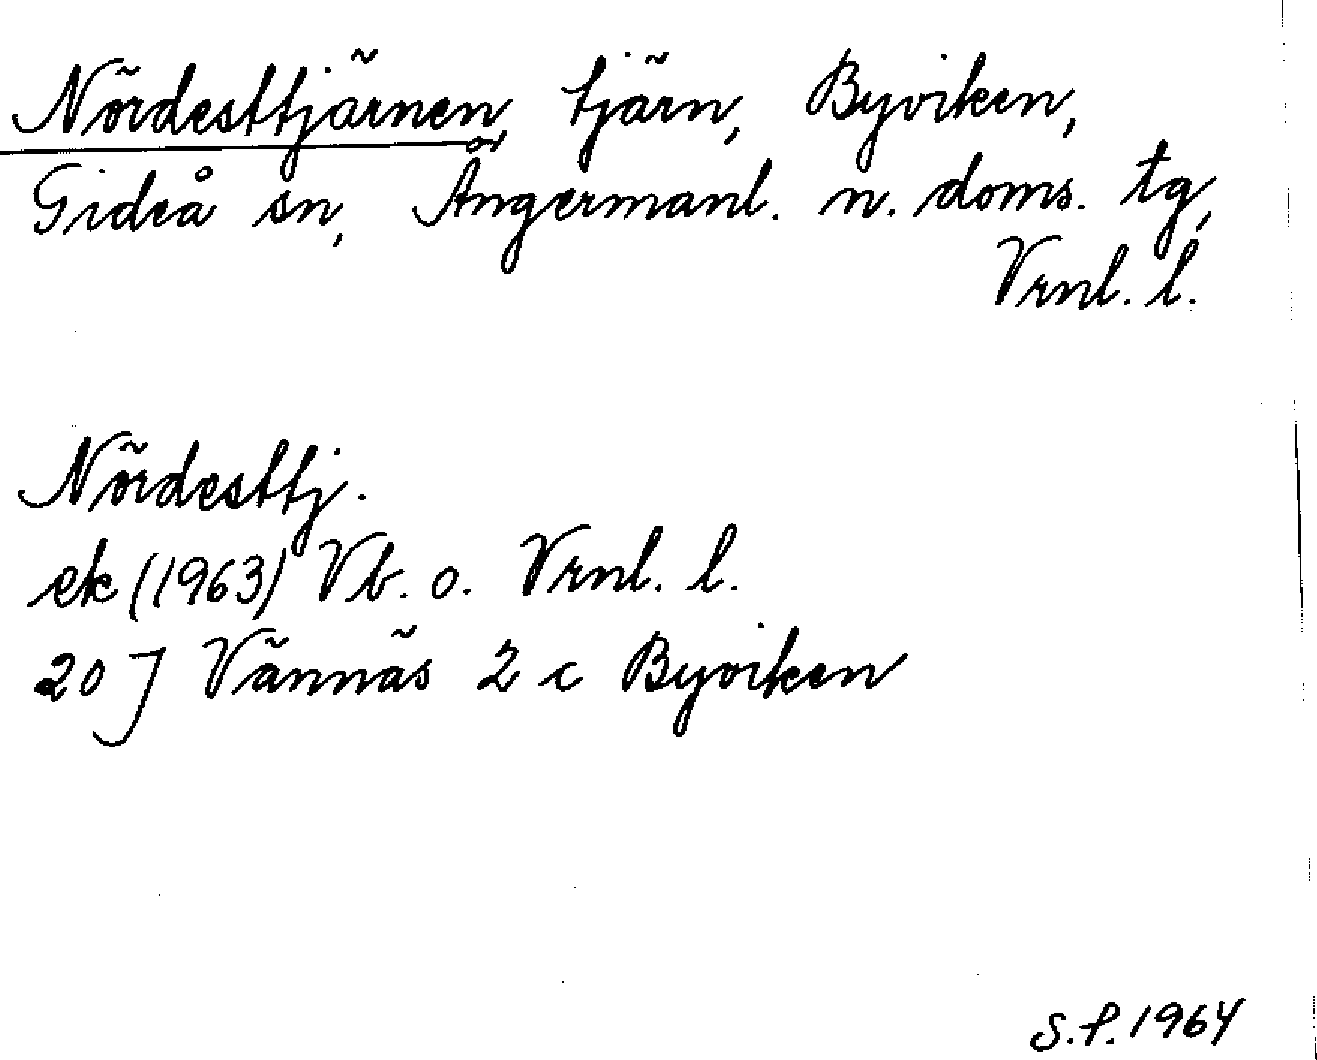 Nördesttjärnen, tjärn, Byviken,
Gideå sn, Ångermanl. n. doms. tg,
Vrnl. l.
Nördesttj.
ek (1963) Vb. o. Vrnl. l.
20 J Vännäs 2 c Byviken
S.P. 1964